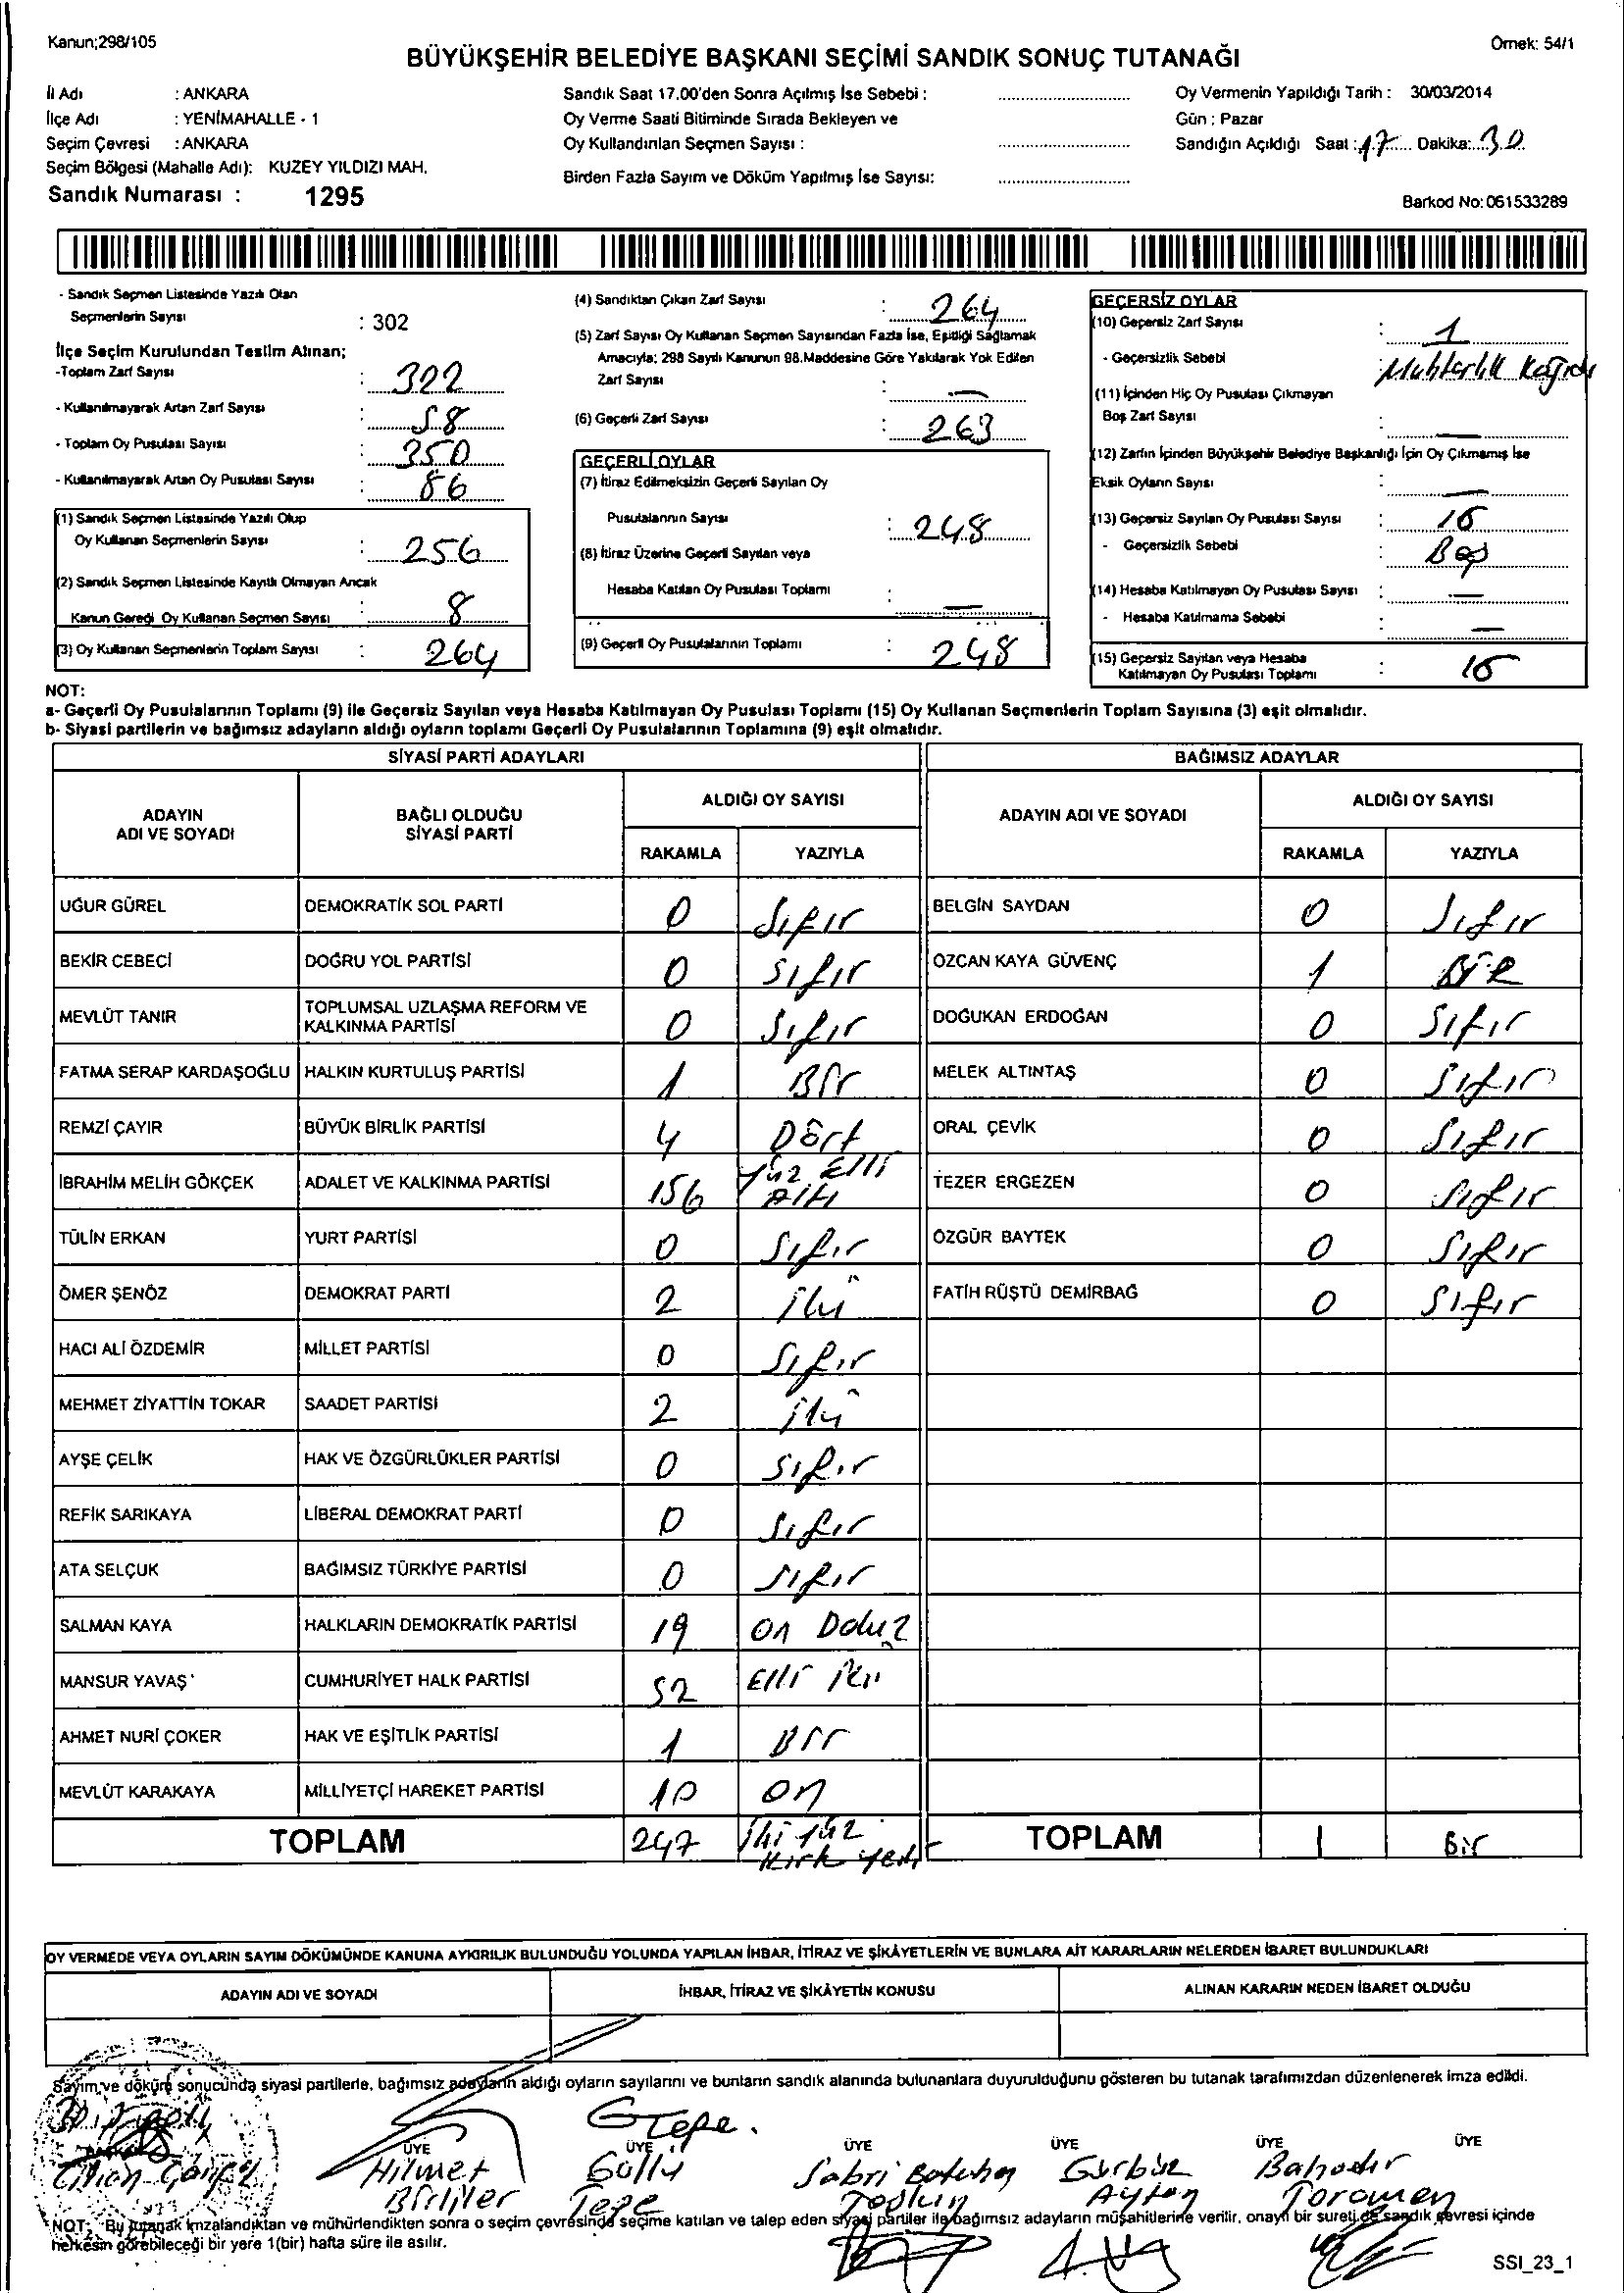 Kanun;298/105
Örnek: 54/1
BÜYÜKŞEHİR BELEDİYE BAŞKANI SEÇİMİ SANDIK SONUÇ TUTANAĞI
İl Adı : ANKARA
İlçe Adı : YENİMAHALLE - 1
Seçim Çevresi : ANKARA
Seçim Bölgesi (Mahalle Adı): KUZEY YILDIZI MAH.
Sandık Numarası : 1295
Sandık Saat 17.00'den Sonra Açılmış İse Sebebi :
Oy Verme Saati Bitiminde Sırada Bekleyen ve
Oy Kullandırılan Seçmen Sayısı :
Birden Fazla Sayım ve Döküm Yapılmış İse Sayısı:
Oy Vermenin Yapıldığı Tarih : 30/03/2014
Gün : Pazar
Sandığın Açıldığı Saat : 17 Dakika: 30
Barkod No: 061533289
- Sandık Seçmen Listesinde Yazılı Olan
Seçmenlerin Sayısı : 302
İlçe Seçim Kurulundan Teslim Alınan;
-Toplam Zarf Sayısı : 322
- Kullanılmayarak Artan Zarf Sayısı : 58
- Toplam Oy Pusulası Sayısı : 350
- Kullanılmayarak Artan Oy Pusulası Sayısı : 86
(1) Sandık Seçmen Listesinde Yazılı Olup
Oy Kullanan Seçmenlerin Sayısı : 256
(2) Sandık Seçmen Listesinde Kayıtlı Olmayan Ancak
Kanun Gereği Oy Kullanan Seçmen Sayısı : 8
(3) Oy Kullanan Seçmenlerin Toplam Sayısı : 264
(4) Sandıktan Çıkan Zarf Sayısı : 264
(5) Zarf Sayısı Oy Kullanan Seçmen Sayısından Fazla İse, Eşitliği Sağlamak
Amacıyla; 298 Sayılı Kanunun 98.Maddesine Göre Yakılarak Yok Edilen
Zarf Sayısı : —
(6) Geçerli Zarf Sayısı : 263
GEÇERLİ OYLAR
(7) İtiraz Edilmeksizin Geçerli Sayılan Oy
Pusulalarının Sayısı : 248
(8) İtiraz Üzerine Geçerli Sayılan veya
Hesaba Katılan Oy Pusulası Toplamı : —
(9) Geçerli Oy Pusulalarının Toplamı : 248
GEÇERSİZ OYLAR
(10) Geçersiz Zarf Sayısı : 1
- Geçersizlik Sebebi : Muhtarlık Kağıdı
(11) İçinden Hiç Oy Pusulası Çıkmayan
Boş Zarf Sayısı : —
(12) Zarfın İçinden Büyükşehir Belediye Başkanlığı İçin Oy Çıkmamış İse
Eksik Oyların Sayısı : —
(13) Geçersiz Sayılan Oy Pusulası Sayısı : 16
- Geçersizlik Sebebi : Boş
(14) Hesaba Katılmayan Oy Pusulası Sayısı : —
- Hesaba Katılmama Sebebi : —
(15) Geçersiz Sayılan veya Hesaba
Katılmayan Oy Pusulası Toplamı : 16
NOT:
a- Geçerli Oy Pusulalarının Toplamı (9) ile Geçersiz Sayılan veya Hesaba Katılmayan Oy Pusulası Toplamı (15) Oy Kullanan Seçmenlerin Toplam Sayısına (3) eşit olmalıdır.
b- Siyasi partilerin ve bağımsız adayların aldığı oyların toplamı Geçerli Oy Pusulalarının Toplamına (9) eşit olmalıdır.
SİYASİ PARTİ ADAYLARI BAĞIMSIZ ADAYLAR
ADAYIN ADI VE SOYADI BAĞLI OLDUĞU SİYASİ PARTİ ALDIĞI OY SAYISI ADAYIN ADI VE SOYADI ALDIĞI OY SAYISI
RAKAMLA YAZIYLA RAKAMLA YAZIYLA
UĞUR GÜREL DEMOKRATİK SOL PARTİ 0 Sıfır BELGİN SAYDAN 0 Sıfır
BEKİR CEBECİ DOĞRU YOL PARTİSİ 0 Sıfır ÖZCAN KAYA GÜVENÇ 1 BİR
MEVLÜT TANIR TOPLUMSAL UZLAŞMA REFORM VE KALKINMA PARTİSİ 0 Sıfır DOĞUKAN ERDOĞAN 0 Sıfır
FATMA SERAP KARDAŞOĞLU HALKIN KURTULUŞ PARTİSİ 1 Bir MELEK ALTINTAŞ 0 Sıfır
REMZİ ÇAYIR BÜYÜK BİRLİK PARTİSİ 4 Dört ORAL ÇEVİK 0 Sıfır
İBRAHİM MELİH GÖKÇEK ADALET VE KALKINMA PARTİSİ 156 Yüz Elli Altı TEZER ERGEZEN 0 Sıfır
TÜLİN ERKAN YURT PARTİSİ 0 Sıfır ÖZGÜR BAYTEK 0 Sıfır
ÖMER ŞENÖZ DEMOKRAT PARTİ 2 İki FATİH RÜŞTÜ DEMİRBAĞ 0 Sıfır
HACI ALİ ÖZDEMİR MİLLET PARTİSİ 0 Sıfır
MEHMET ZİYATTİN TOKAR SAADET PARTİSİ 2 İki
AYŞE ÇELİK HAK VE ÖZGÜRLÜKLER PARTİSİ 0 Sıfır
REFİK SARIKAYA LİBERAL DEMOKRAT PARTİ 0 Sıfır
ATA SELÇUK BAĞIMSIZ TÜRKİYE PARTİSİ 0 Sıfır
SALMAN KAYA HALKLARIN DEMOKRATİK PARTİSİ 19 On Dokuz
MANSUR YAVAŞ CUMHURİYET HALK PARTİSİ 52 Elli İki
AHMET NURİ ÇOKER HAK VE EŞİTLİK PARTİSİ 1 Bir
MEVLÜT KARAKAYA MİLLİYETÇİ HAREKET PARTİSİ 10 On
TOPLAM 247 İki yüz Kırk yedi TOPLAM 1 Bir
OY VERMEDE VEYA OYLARIN SAYIM DÖKÜMÜNDE KANUNA AYKIRILIK BULUNDUĞU YOLUNDA YAPILAN İHBAR, İTİRAZ VE ŞİKÂYETLERİN VE BUNLARA AİT KARARLARIN NELERDEN İBARET BULUNDUKLARI
ADAYIN ADI VE SOYADI İHBAR, İTİRAZ VE ŞİKÂYETİN KONUSU ALINAN KARARIN NEDEN İBARET OLDUĞU
Sayım ve döküm sonucunda siyasi partilerle, bağımsız adayların aldığı oyların sayılarını ve bunların sandık alanında bulunanlara duyurulduğunu gösteren bu tutanak tarafımızdan düzenlenerek imza edildi.
GTepe.
ÜYE ÜYE ÜYE ÜYE ÜYE ÜYE
Hikmet Güllü Sabri Gürbüz Bahadır
Tepe Aytaç Toraman
NOT: Bu tutanak imzalandıktan ve mühürlendikten sonra o seçim çevresinde seçime katılan ve talep eden siyasi partiler ile bağımsız adayların müşahitlerine verilir, onaylı bir sureti de sandık çevresi içinde
herkesin görebileceği bir yere 1(bir) hafta süre ile asılır.
SSI_23_1